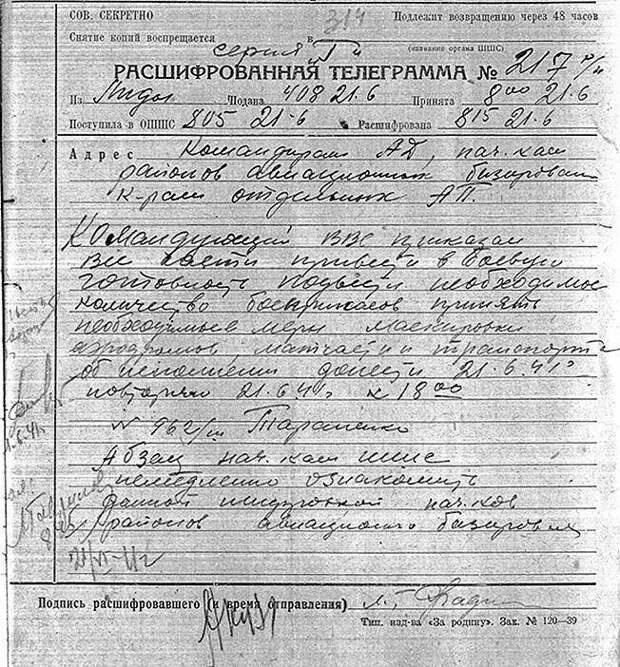 СОВ. СЕКРЕТНО
Подлежит возвращению через 48 часов
Снятие копий воспрещается
в
серия "Г"
(название органа ШШС)
РАСШИФРОВАННАЯ ТЕЛЕГРАММА № 217
Из Лиды Подана 408 21.6 Принята 8 00 21.6
Поступила в ОШШС 805 21.6 Расшифрована 815 21.6
Адрес Командирам АД, нач. кам
районов авиационных базирован
к-рам отдельных АП.
Командующий ВВС приказал
все части привести в боевую
готовность подвести необходимое
количество боеприпасов принять
необходимые меры маскировки
аэродромов, матчасти и транспорта
об исполнении донести 21.6.41г
повторяю 21.6.41г к 18 00
№ 962/ш Тараненко
Абзац нач. кам шшс
немедленно ознакомить
данной шифровкой нач-ков
районов авиационного базирован
Подпись расшифровавшего (и время отправления)
Тип. изд-ва «За родину». Зак. № 120—39